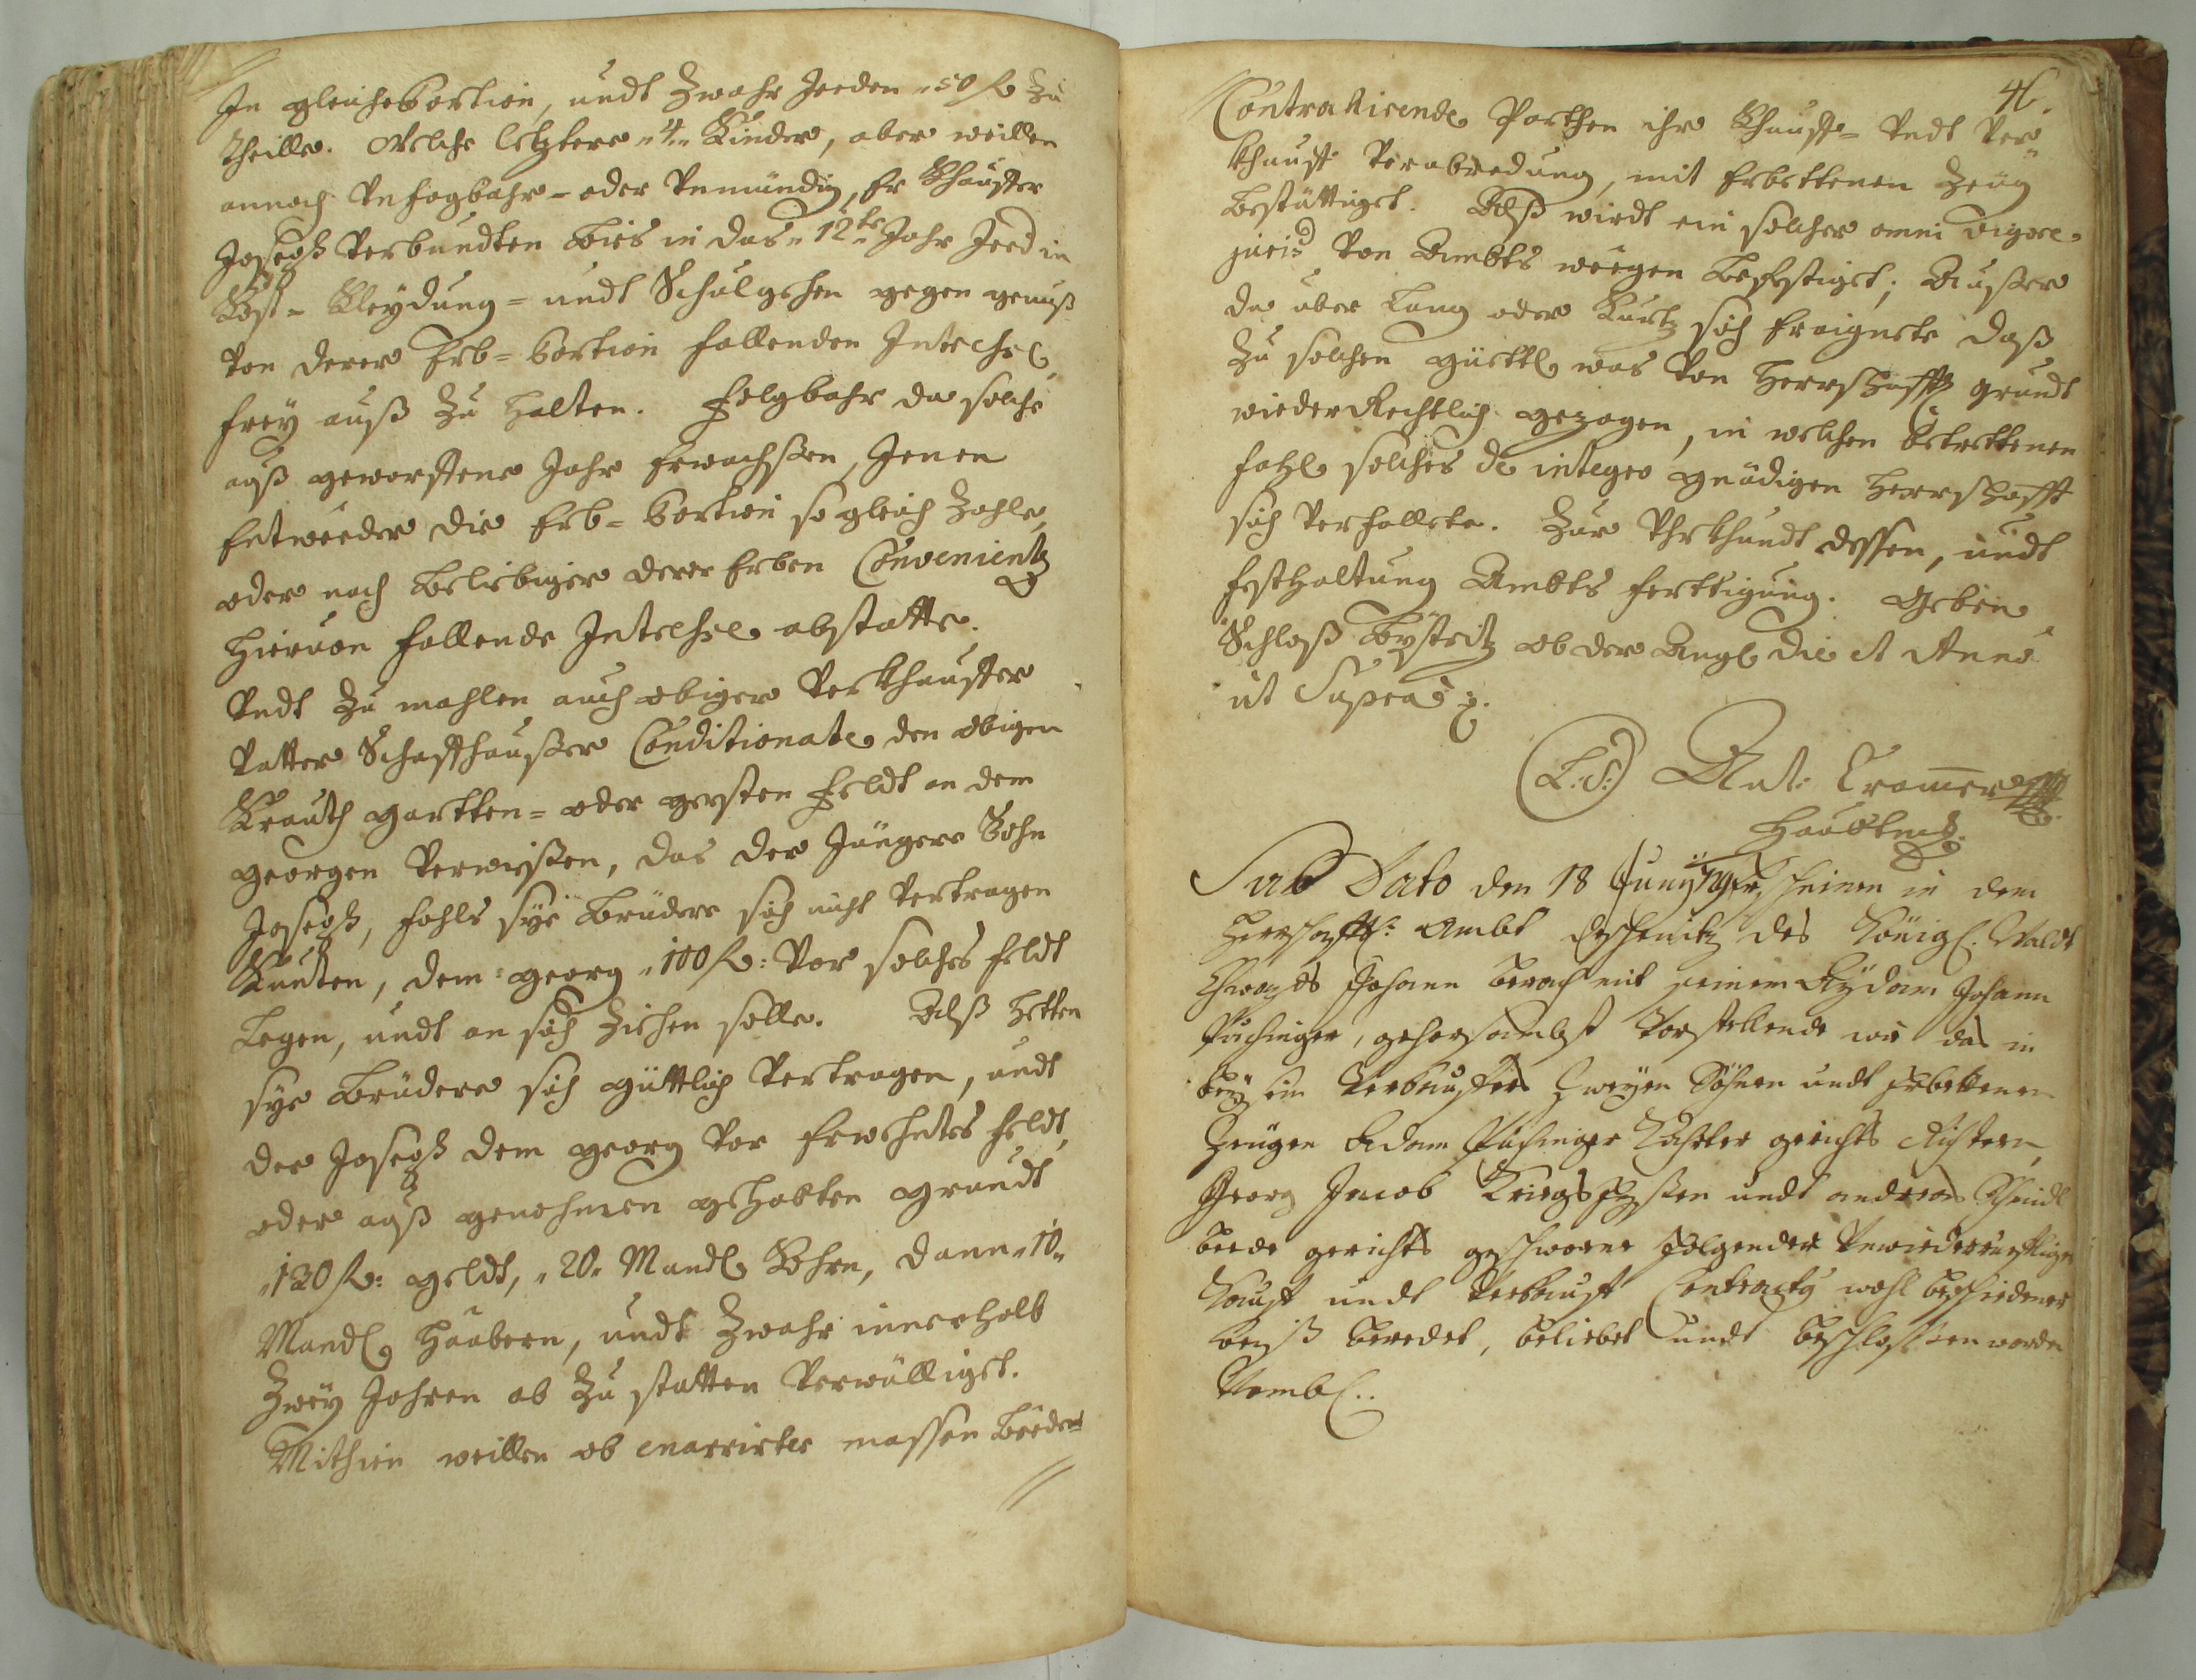 In gleiche Portion, undt Zwahr Jeeden „50 f. Zu
theille. Welche letztere „4„ Kinder, aber weillen
annoch Vnfogbahr- oder Vnmündig, Er Khauffer
Joseph Verbundten biß in das „12te Jahr Jeed in
Kost- Kleydung- undt Schulgehen gegen genuß
Von derer Erb-Portion fallenden Interesse
frey auß Zu halten. Folgbahr da solche
auß geworffene Jahr Erwachssen, Jenen
Entweeder die Erb-Portion so gleich Zahle,
oder nach beliebiger derer Erben Convenientz
hieruon fallende Interesse abstatte.
Vndt Zu mahlen auch obiger Verkhauffer
Vatter Schaffhausser Conditionate den obigen
Krauth gartten- oder gersten Feldt an dem
Georgen Verwissen, das der Jüngere Sohn
Joseph, fahls sye brüdere sich nicht Vertragen
Kundten, dem Georg „100 f: Vor solches feldt
Legen, undt an sich Ziehen solle. Alß hetten
sye brüdere sich güttlich Vertragen, undt
der Joseph dem Georg Vor Erwehntes Feldt,
oder auß genohmen gehabten grundt
„120 f: geldt, „20„ Mandl Kohrn, dann „10„
Mandl Haabern, undt Zwahr innerhalb
Zwey Jahren ab Zu statten Verwülliget.
Mithin weillen ob enarrirter massen beede
46.
Contrahirende Parthen ihr Khauff- Vndt Ver-
khauff Verabredung, mit Erbettenen Zeug
bestättiget. Alß wirdt ein solcher omni vigore
juris Von Ambts weegen befestiget; Ausser
da über Lang oder Kurtz sich Eraignete daß
Zu solchen güettl was Von Herrschaffts grundt
wieder Rechtlich gezogen, in welchen betrettenen
fahl solches de integro gnädigen Herrschafft
sich Verfallete. Zur Vhrkhundt dessen, undt
festhaltung Ambts ferttigung. Geben
Schloß Bystritz ob der Angl die et Anno
ut Supra
(L.S.) Ant: Cramer
Haubtm.
Sub Dato den 18 Juny Erscheinen in dem
Herrschafftl: Ambt des Königl. Waldt
Johann mit seinem Eydam Johann
gehorsambst Vorstellende wie das in
Verkauffers Zweyen Söhnen undt Erbettenen
Zeugen Adam gerichts Richtern,
Georg Jacob undt andreas
beede gerichts geschworne folgender Vnwiederruefflige
Kauff undt Verkauff Contract wohl beschiedener
beredet, beliebet undt beschlossen worden
Nembl..